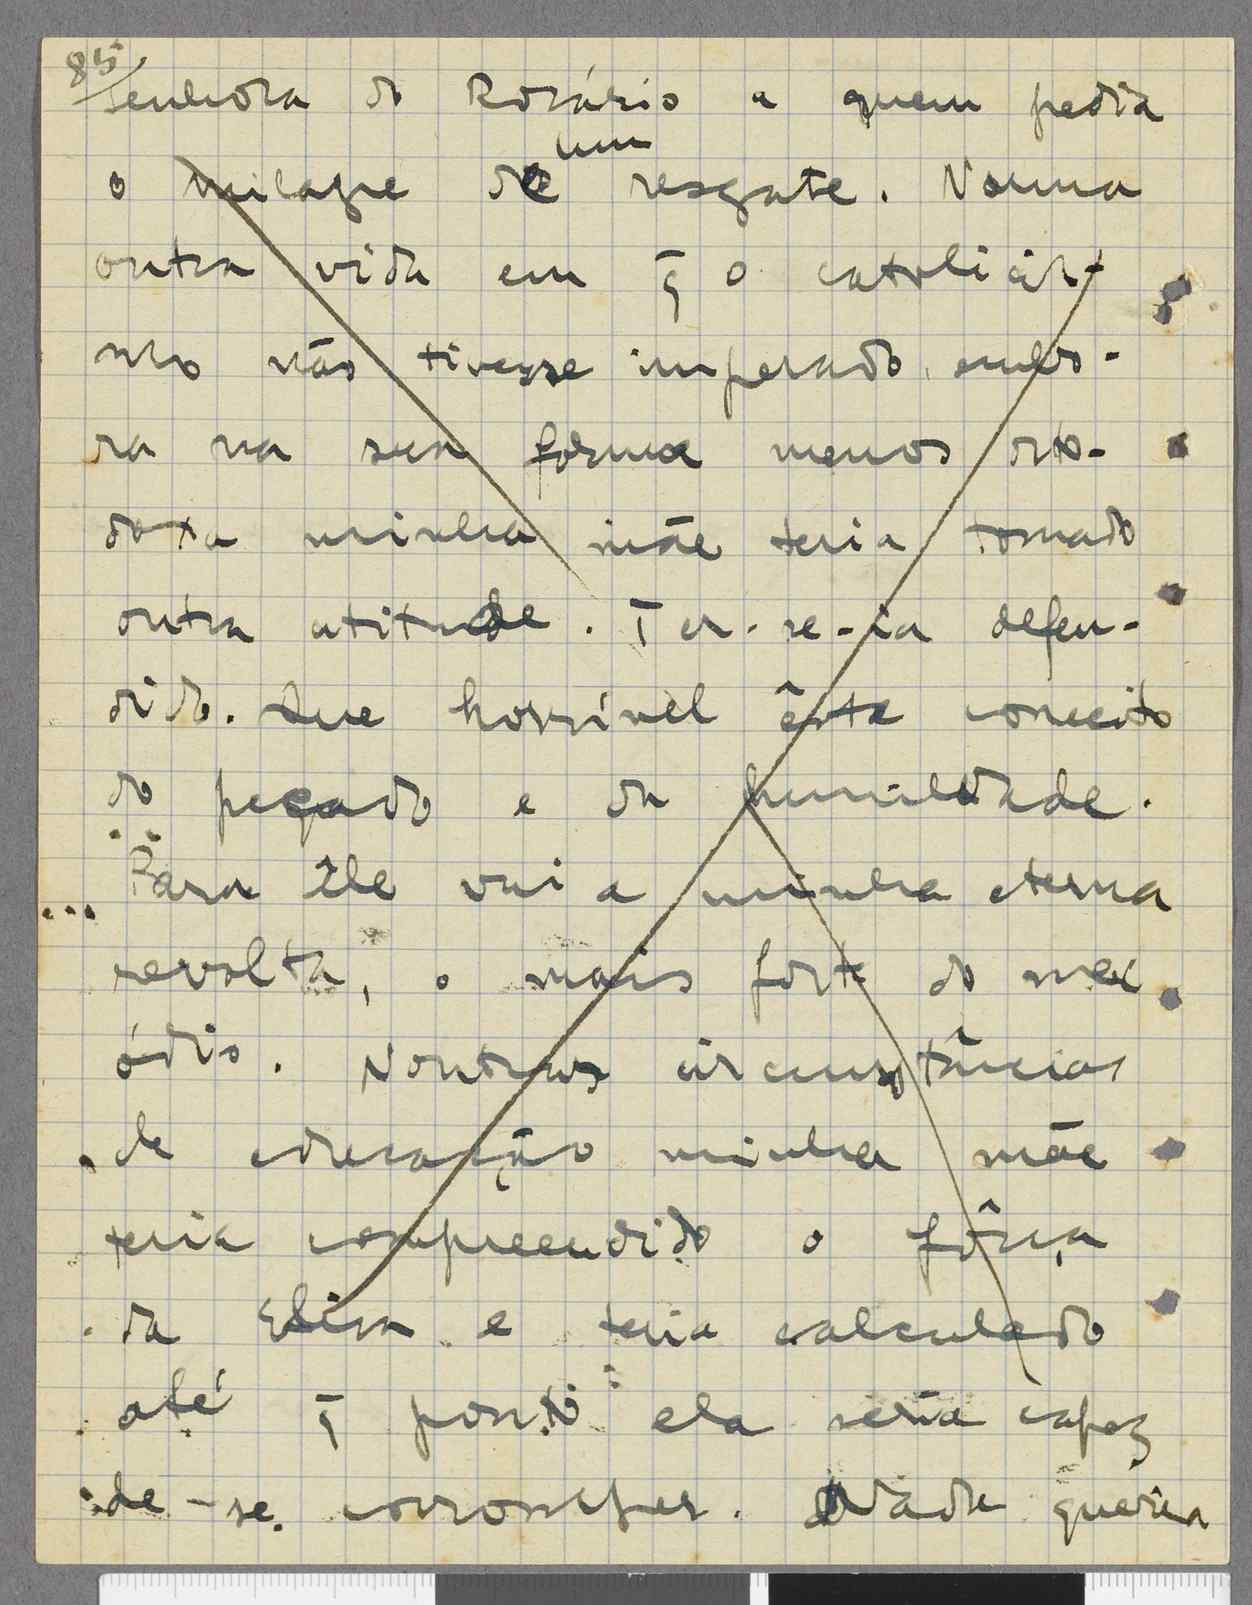 85
Senhora do Rosário a quem pedia
um
o milagre de resgate. Numa
outra vida em q̄ o catolicis-
mo não tivesse imperado, embo-
ra na sua forma menos orto-
doxa minha mãe teria tomado
outra atitude. Ter-se-ia defen-
dido. Que horrível êste conceito
do pecado e da humildade.
Para êle vai a minha eterna
revolta, o mais forte do meu
ódio. Noutras circunstâncias
de educação minha mãe
teria compreendido a fôrça
da Elisa e teria calculado
até q̄ ponto ela seria capaz
de-se corromper. Nada queria